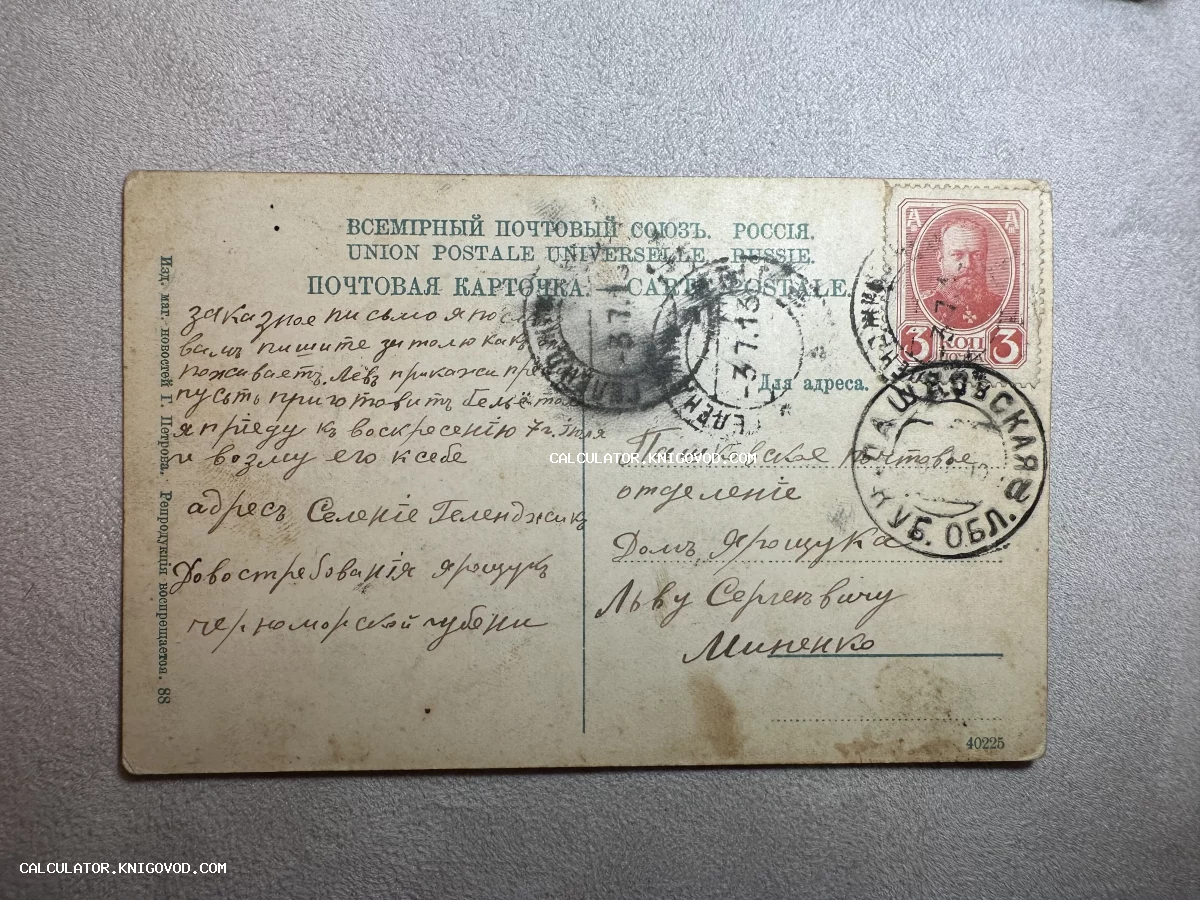 ВСЕМІРНЫЙ ПОЧТОВЫЙ СОЮЗЪ. РОССІЯ.
UNION POSTALE UNIVERSELLE. RUSSIE.
ПОЧТОВАЯ КАРТОЧКА. CARTE POSTALE.
Изд. маг. новостей Г. Петрова. Репродукція воспрещается. 88
заказное письмо я
вамъ пишите за толю какъ
поживаетъ Лёвъ прикажи
пусть приготовитъ бельё
я приеду къ воскресению 7г. Июля
и возму его к себе
адресъ Селеніе Геленджикъ
Довостребованія Ярощукъ
черноморской губени
Для адреса.
Пашковское почтовое
отделеніе
Домъ Ярощука
Льву Сергеевичу
Миненко
40225
3 КОП 3
-3.7.13
-3.7.13
ПАШКОВСКАЯ
КУБ. ОБЛ.
CALCULATOR.KNIGOVOD.COM
CALCULATOR.KNIGOVOD.COM